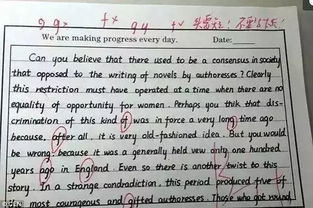 g g x f x g y f v
We are making progress every day. Date:
Can you believe that there used to be a consensus in society
that opposed to the writing of novels by authoresses? Clearly
this restriction must have operated at a time when there are no
equality of opportunity for women. Perhaps you think that dis-
crimination of this kind of was in force a very long time ago
because, after all, it is very old-fashioned idea. But you would
be wrong, because it was a generally held view only one hundred
years ago in England. Even so there is another twist to this
story. In a strange condradiction, this period produced five of
most courageous and gifted authoresses. Those who got round